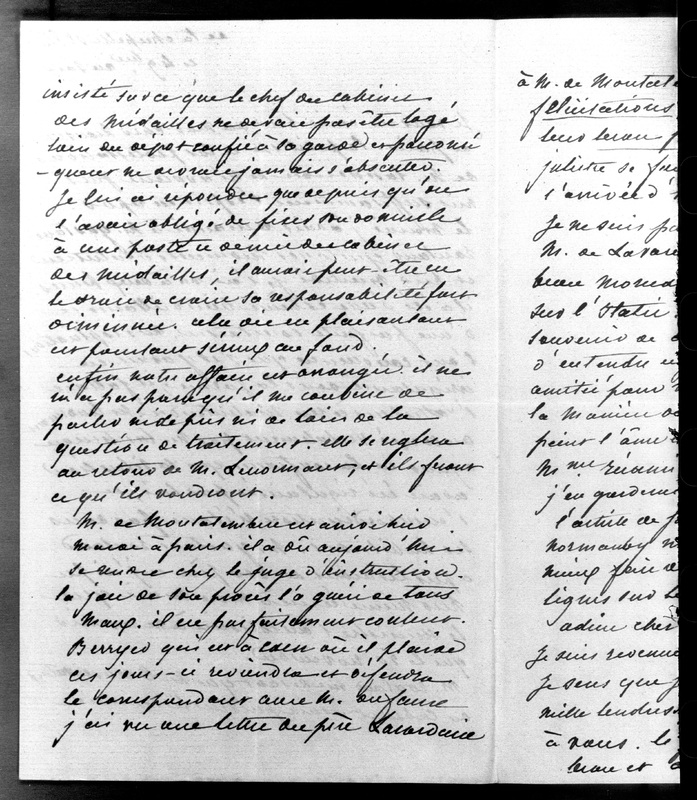 insisté sur ce que le chef du cabinet
des médailles ne devait pas être logé
loin du dépôt confié à sa garde et par conséquent
ne devait jamais s'absenter.
Je lui ai répondu que depuis qu'on
l'avait obligé de fixer son domicile
à une poste et demie du cabinet
des médailles, il aurait peut-être eu
le droit de croire sa responsabilité fort
diminuée. cela dit en plaisantant
et pourtant sérieux au fond.
enfin notre affaire est arrangée. il ne
m'a pas paru qu'il me convint de
parler ni de près ni de loin de la
question de traitement. elle se réglera
au retour de M. Lenormant, et ils feront
ce qu'ils voudront.
M. de Montalembert est arrivé hier
mardi à paris. il a dû aujourd'hui
se rendre chez le juge d'instruction.
la joie de son procès l'a guéri de tous
maux. il est parfaitement content.
Berryer qui est à Caen où il plaide
ces jours-ci reviendra et défendra
le correspondant avec M. dufaure
j'ai vu une lettre du père Lacordaire
à M. de Montale
félicitations
leur beau
juliette se
l'arrivée d'
Je ne suis pa
M. de
beau
sur l'
souvenir de
d'entendre
amitié pour
la manière
peint l'âme
Mme Récami
j'en
l'artiste de
normanby
mieux faire
lignes sur
adieu cher
Je suis revenu
Je sens que j
mille tendres
à vous. le
beau et